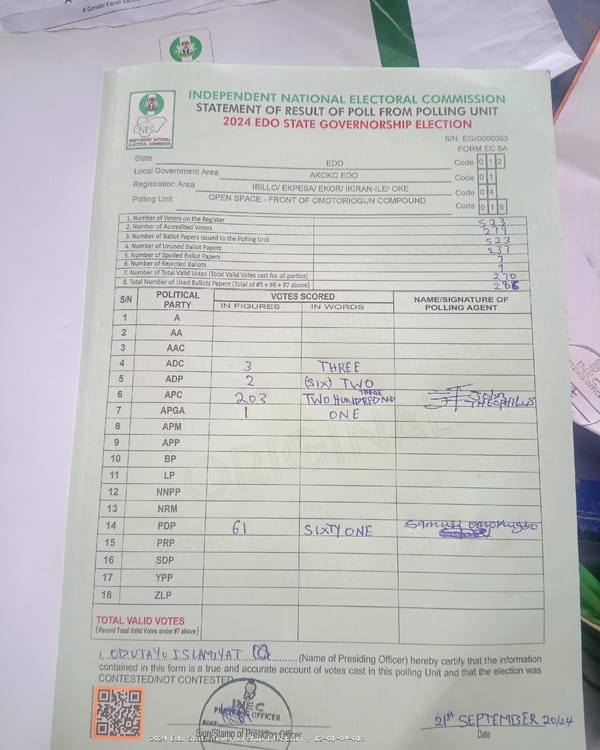 A Gender Equal Society
INDEPENDENT NATIONAL ELECTORAL COMMISSION
STATEMENT OF RESULT OF POLL FROM POLLING UNIT
2024 EDO STATE GOVERNORSHIP ELECTION
INEC
INDEPENDENT NATIONAL ELECTORAL COMMISSION
S/N: EG/0000383
FORM EC 8A
State EDO Code 0 1 2
Local Government Area AKOKO EDO Code 0 1
Registration Area IBILLO/ EKPESA/ EKOR/ IKIRAN-ILE/ OKE Code 0 4
Polling Unit OPEN SPACE - FRONT OF OMOTORIOGUN COMPOUND Code 0 1 8
1. Number of Voters on the Register 523
2. Number of Accredited Voters 279
3. Number of Ballot Papers issued to the Polling Unit 523
4. Number of Unused Ballot Papers 237
5. Number of Spoiled Ballot Papers 7
6. Number of Rejected Ballots 9
7. Number of Total Valid Votes (Total Valid Votes cast for all parties) 270
8. Total Number of Used Ballots Papers (Total of #5 + #6 + #7 above) 286
S/N POLITICAL PARTY VOTES SCORED NAME/SIGNATURE OF POLLING AGENT
IN FIGURES IN WORDS
1 A
2 AA
3 AAC
4 ADC 3 THREE
5 ADP 2 (SIX) TWO
6 APC 203 TWO HUNDRED AND THREE
7 APGA 1 ONE
8 APM
9 APP
10 BP
11 LP
12 NNPP
13 NRM
14 PDP 61 SIXTY ONE Samuel
15 PRP
16 SDP
17 YPP
18 ZLP
ORIGINAL
TOTAL VALID VOTES
(Record Total Valid Votes under #7 above)
I, ODUTAYO ISLAMIYAT (Name of Presiding Officer) hereby certify that the information
contained in this form is a true and accurate account of votes cast in this polling Unit and that the election was
CONTESTED/NOT CONTESTED
INEC
PRESIDING OFFICER
21ST SEPTEMBER 2024
Sign/Stamp of Presiding Officer Date